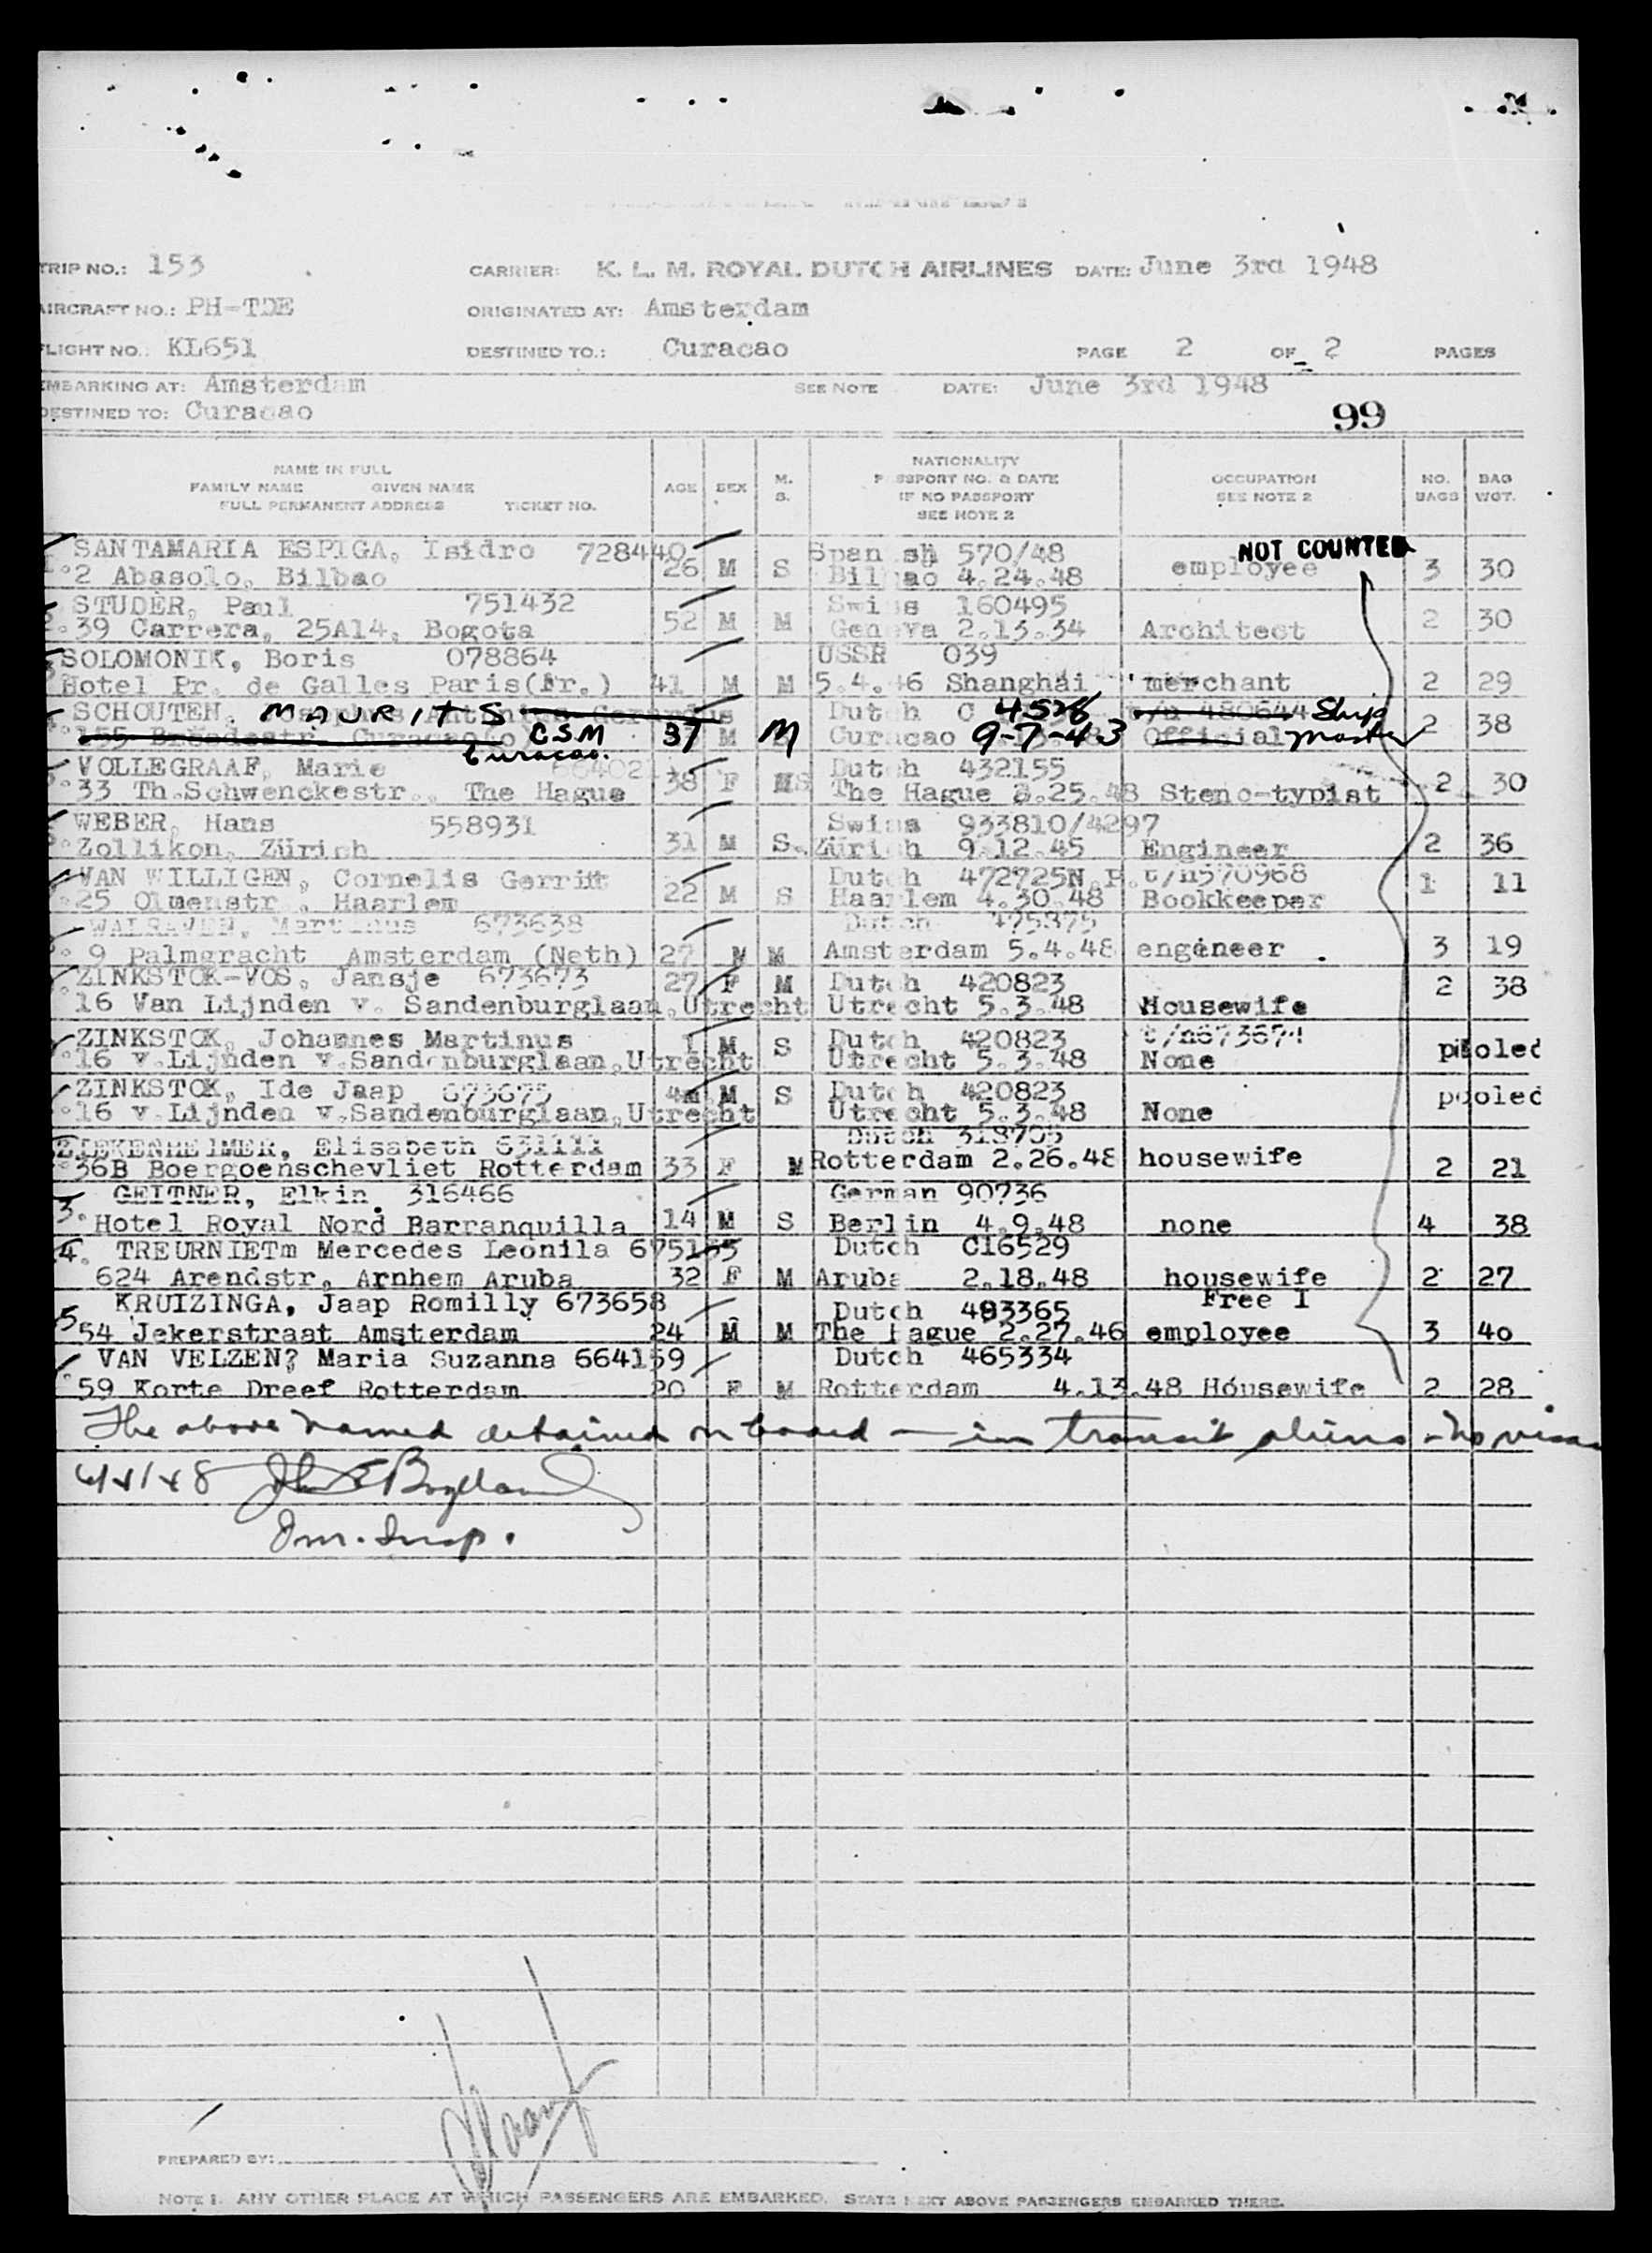 TRIP NO.: 153 CARRIER: K. L. M. ROYAL DUTCH AIRLINES DATE: June 3rd 1948
AIRCRAFT NO.: PH-TDE ORIGINATED AT: Amsterdam
FLIGHT NO.: KL651 DESTINED TO.: Curacao PAGE 2 OF 2 PAGES
EMBARKING AT: Amsterdam SEE NOTE DATE: June 3rd 1948
DESTINED TO: Curacao
99
NAME IN FULL
FAMILY NAME GIVEN NAME
FULL PERMANENT ADDRESS TICKET NO.
AGE SEX M. S.
NATIONALITY
PASSPORT NO. & DATE
IF NO PASSPORT
SEE NOTE 2
OCCUPATION
SEE NOTE 2
NO. BAGS
BAG WGT.
NOT COUNTED
SANTAMARIA ESPIGA, Isidro 728440 Spanish 570/48
2 Abasolo, Bilbao 26 M S Bilbao 4.24.48 employee 3 30
STUDER, Paul 751432 Swiss 160495
39 Carrera, 25A14, Bogota 52 M M Geneva 2.13.34 Architect 2 30
SOLOMONIK, Boris 078864 USSR 039
Hotel Pr. de Galles Paris(Fr.) 41 M M 5.4.46 Shanghai merchant 2 29
SCHOUTEN, MAURITS Dutch C 4526 t/n 480644 Ship
155 Breedestr. Curacao CSM 37 M M Curacao 9-7-43 Official Master 2 38
Curacao.
VOLLEGRAAF, Marie Dutch 432155
33 Th.Schwenckestr., The Hague 38 F MS The Hague 3.25.48 Steno-typist 2 30
WEBER, Hans 558931 Swiss 933810/4297
Zollikon, Zürich 31 M S. Zürich 9.12.45 Engineer 2 36
VAN WILLIGEN, Cornelis Gerrit Dutch 472725N.P. t/n570968
25 Olmenstr., Haarlem 22 M S Haarlem 4.30.48 Bookkeeper 1 11
WALRAVEN, Martinus 673638 Dutch 475375
9 Palmgracht Amsterdam (Neth) 27 M M Amsterdam 5.4.48 engineer 3 19
ZINKSTOK-VOS, Jansje 673673 27 F M Dutch 420823 2 38
16 Van Lijnden v. Sandenburglaan,Utrecht Utrecht 5.3.48 Housewife
ZINKSTOK, Johannes Martinus 1 M S Dutch 420823 t/n673674
16 v.Lijnden v.Sandenburglaan,Utrecht Utrecht 5.3.48 None pooled
ZINKSTOK, Ide Jaap 673675 4m M S Dutch 420823 pooled
16 v.Lijnden v.Sandenburglaan,Utrecht Utrecht 5.3.48 None
ZIEKENHEIMER, Elisabeth 631111 Dutch 318705
36B Boergoenschevliet Rotterdam 33 F M Rotterdam 2.26.48 housewife 2 21
3. GEITNER, Elkin 316466 German 90736
Hotel Royal Nord Barranquilla 14 M S Berlin 4.9.48 none 4 38
4. TREURNIETm Mercedes Leonila 675155 Dutch C16529
624 Arendstr, Arnhem Aruba 32 F M Aruba 2.18.48 housewife 2 27
5 KRUIZINGA, Jaap Romilly 673658 Dutch 483365 Free I
54 Jekerstraat Amsterdam 24 M M The Hague 2.27.46 employee 3 40
VAN VELZEN? Maria Suzanna 664159 Dutch 465334
59 Korte Dreef Rotterdam 20 F M Rotterdam 4.13.48 Housewife 2 28
The above named detained on board — in transit aliens - no visas
6/4/48
Imm. Insp.
PREPARED BY:
NOTE 1. ANY OTHER PLACE AT WHICH PASSENGERS ARE EMBARKED. STATE NEXT ABOVE PASSENGERS EMBARKED THERE.